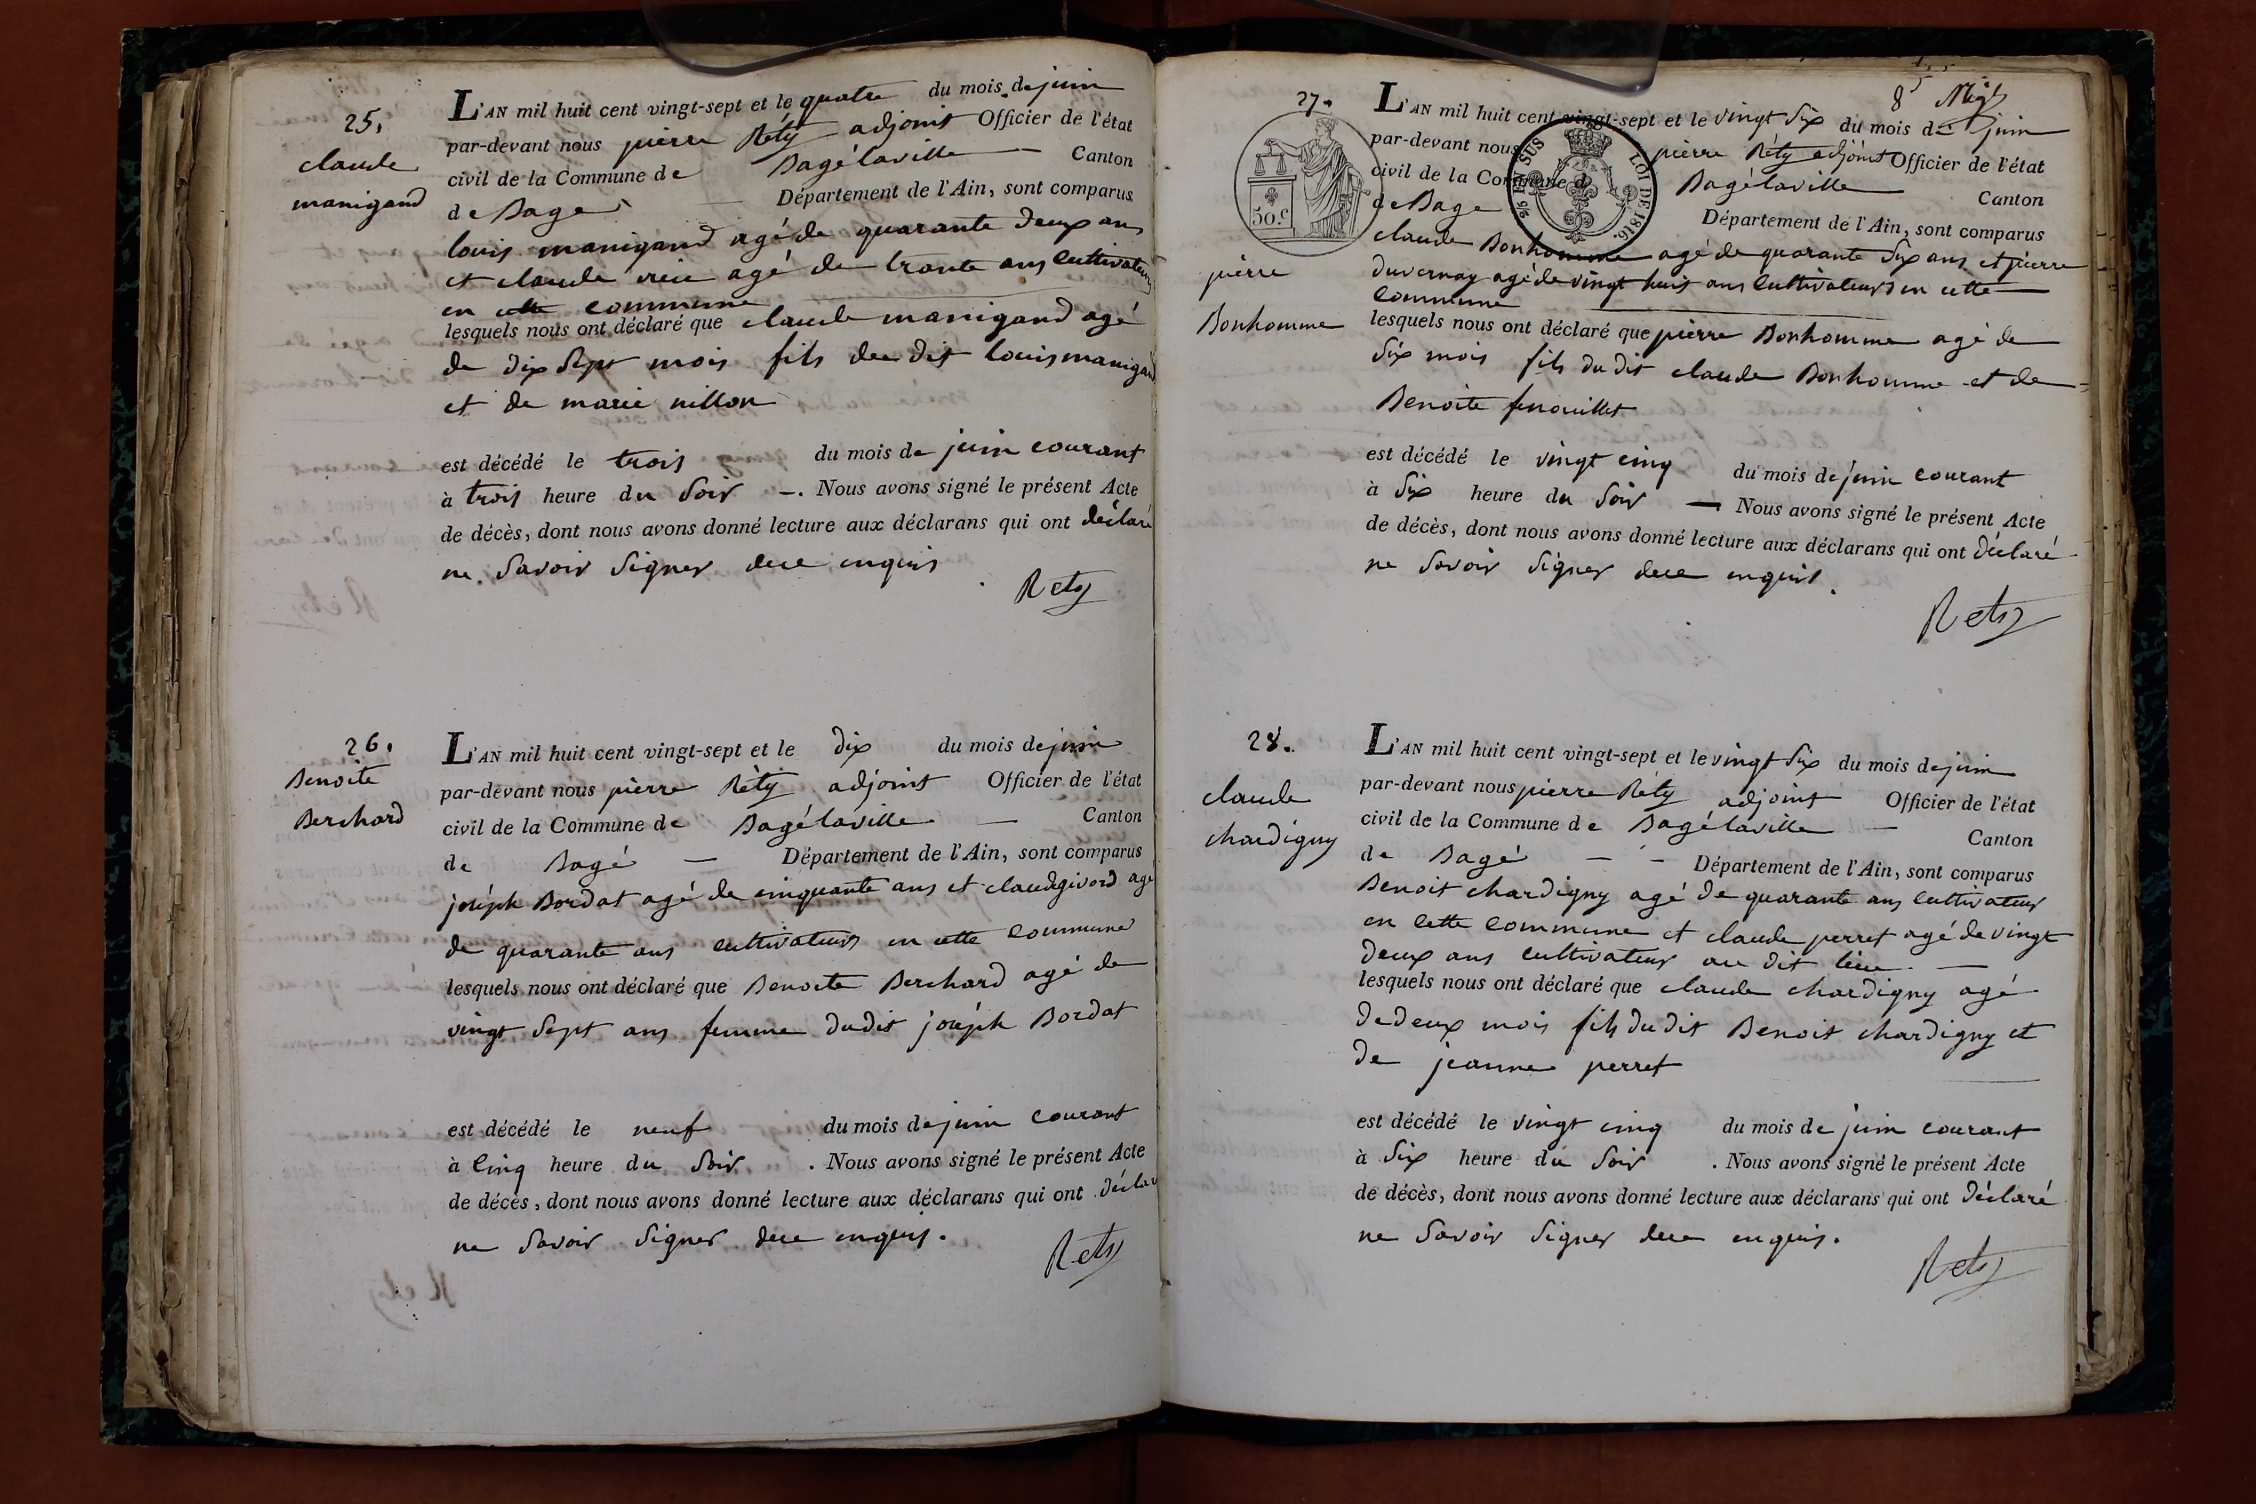 25.
claude
manigand
L'AN mil huit cent vingt-sept et le quatre du mois de juin
par-devant nous pierre Réty adjoint Officier de l'état
civil de la Commune de Bagélaville Canton
de Bage Département de l'Ain, sont comparus
louis manigand agé de quarante deux ans
et claude agé de trante ans cultivateurs
en cette commune
lesquels nous ont déclaré que claude manigand agé
de dix sept mois fils du dit louis manigand
et de marie nillon
est décédé le trois du mois de juin courant
à trois heure du soir . Nous avons signé le présent Acte
de décès, dont nous avons donné lecture aux déclarans qui ont déclaré
ne savoir signer de ce enquis
Rety
26.
Benoite
Berchard
L'AN mil huit cent vingt-sept et le dix du mois de juin
par-devant nous pierre Réty adjoint Officier de l'état
civil de la Commune de Bagélaville Canton
de Bagé Département de l'Ain, sont comparus
joséph Bordat agé de cinquante ans et claude givord agé
de quarante ans cultivateurs en cette commune
lesquels nous ont déclaré que Benoite Berchard agé de
vingt sept ans femme dudit joséph Bordat
est décédé le neuf du mois de juin courant
à cinq heure du soir . Nous avons signé le présent Acte
de décès, dont nous avons donné lecture aux déclarans qui ont déclaré
ne savoir signer de ce enquis.
Rety
8
27.
50.c
EN SUS LOI DE 1816.
pierre
Bonhomme
L'AN mil huit cent vingt-sept et le vingt six du mois de juin
par-devant nous pierre Réty adjoint Officier de l'état
civil de la Commune de Bagélaville Canton
de Bage Département de l'Ain, sont comparus
claude Bonhomme agé de quarante six ans et pierre
duvernay agé de vingt huit ans cultivateurs en cette
commune
lesquels nous ont déclaré que pierre Bonhomme agé de
six mois fils du dit claude Bonhomme et de
Benoite fenouillet
est décédé le vingt cinq du mois de juin courant
à six heure du soir Nous avons signé le présent Acte
de décès, dont nous avons donné lecture aux déclarans qui ont déclaré
ne savoir signer de ce enquis.
Rety
28.
claude
chardigny
L'AN mil huit cent vingt-sept et le vingt six du mois de juin
par-devant nous pierre Réty adjoint Officier de l'état
civil de la Commune de Bagélaville Canton
de Bagé Département de l'Ain, sont comparus
Benoit chardigny agé de quarante ans cultivateur
en cette commune et claude perret agé de vingt
deux ans cultivateur au dit lieu
lesquels nous ont déclaré que claude chardigny agé
de deux mois fils du dit Benoit chardigny et
de jeanne perret
est décédé le vingt cinq du mois de juin courant
à six heure du soir . Nous avons signé le présent Acte
de décès, dont nous avons donné lecture aux déclarans qui ont déclaré
ne savoir signer de ce enquis.
Rety